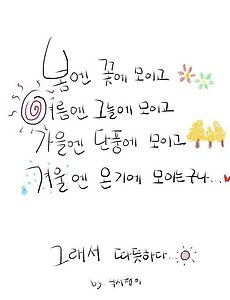 봄엔 꽃에 모이고
여름엔 그늘에 모이고
가을엔 단풍에 모이고
겨울엔 온기에 모이는구나...
그래서 따뜻하다...
by 낙서쟁이